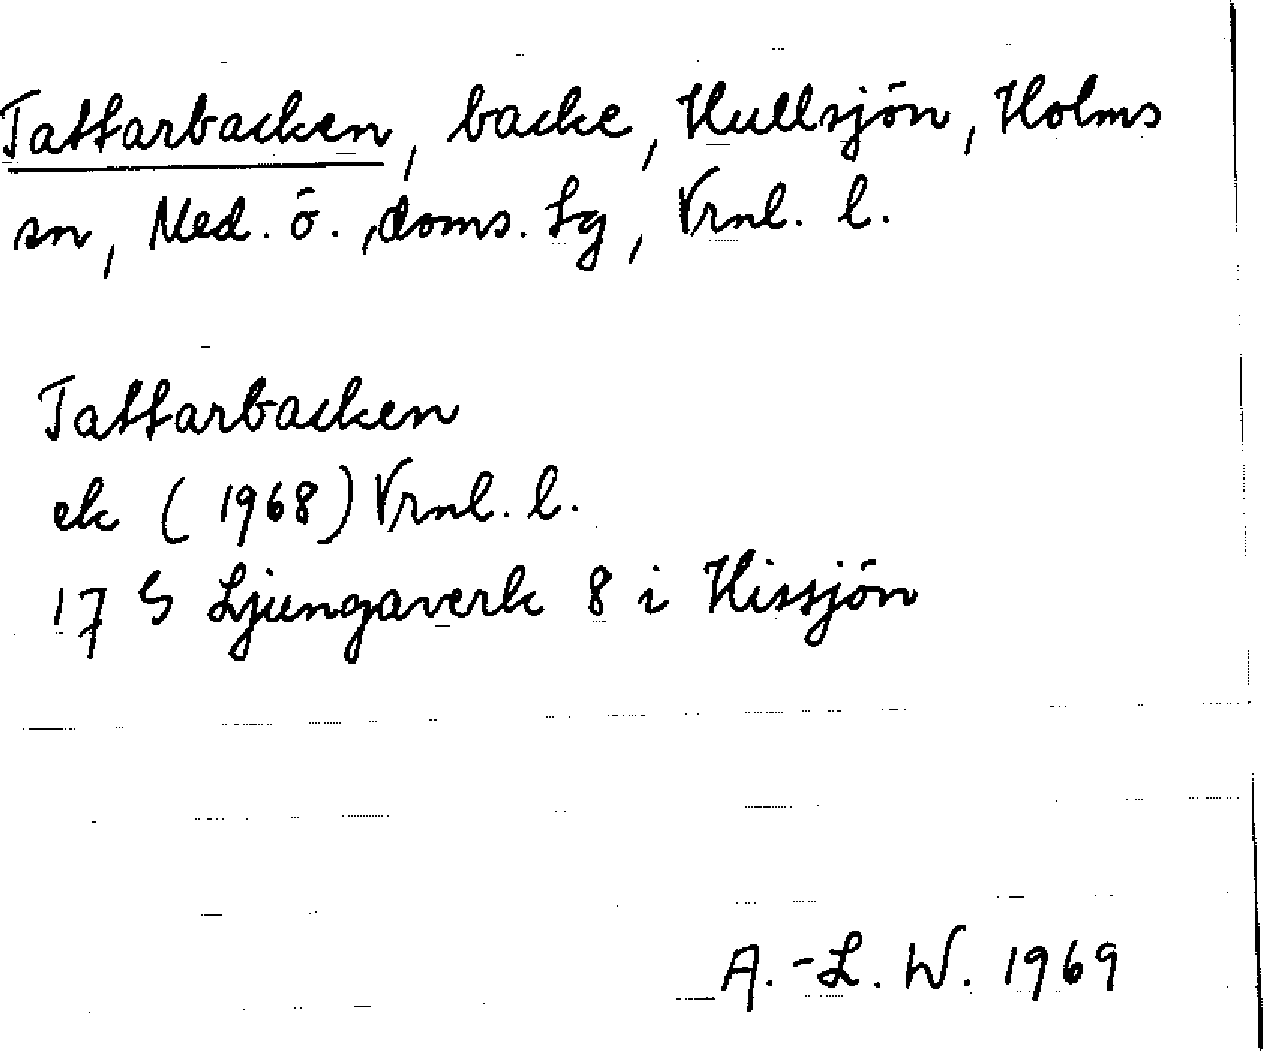 Tattarbacken, backe, Hullsjön, Holms
sn, Med. ö. ,doms. Lg, Vrnl. l.
Tattarbacken
ek (1968) Vrnl. l.
17 G Ljungaverk 8 i Hissjön
A.-L. W. 1969